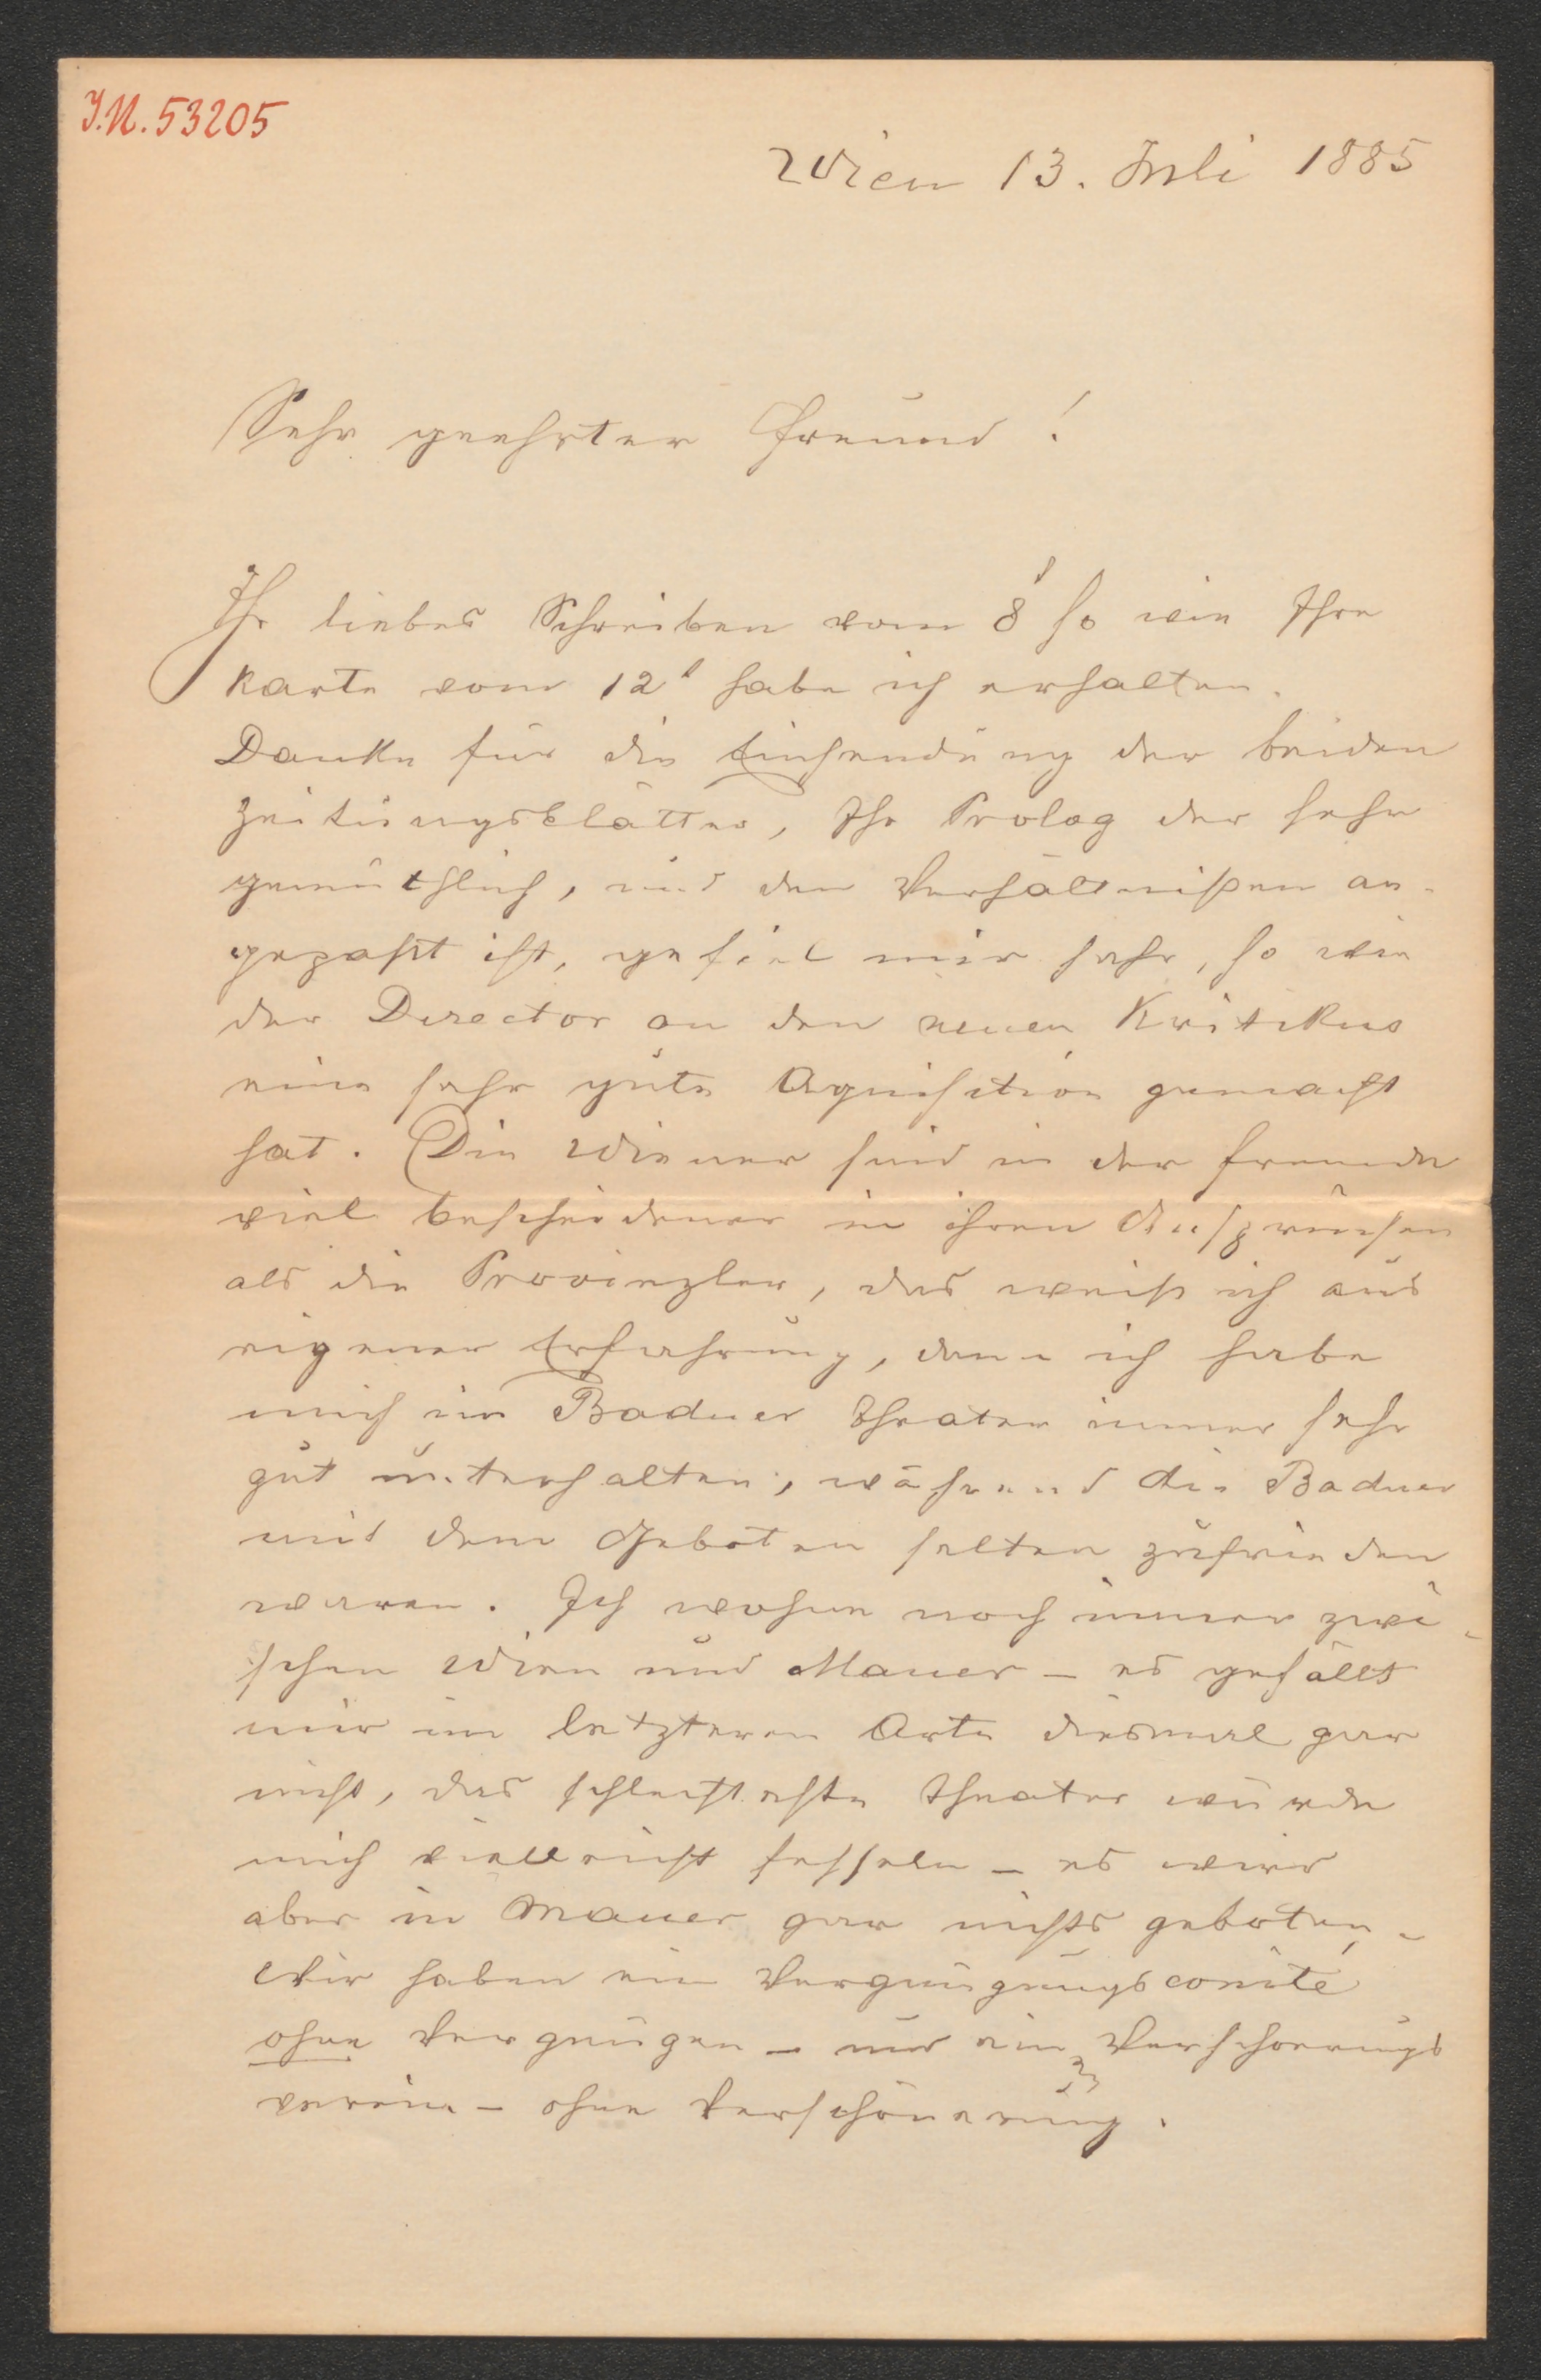 J.N. 53205
Wien 13. Juli 1885
Sehr geehrter Freund!
Ihr liebes Schreiben vom 8t so wie Ihre
Karte vom 12t habe ich erhalten.
Danke für die Einsendung der beiden
Zeitungsblätter, Ihr Prolog der sehr
gemüthlich, und den Verhältnißen an-
gepaßt ist, gefiel mir sehr, so wie
der Director an den neuen Kritikus
eine sehr gute Aquisition gemacht
hat. Die Wiener sind in der Fremde
viel bescheidener in ihren Ansprüchen
als die Provinzler, das weiß ich aus
eigener Erfahrung, denn ich habe
mich im Badner Theater immer sehr
gut unterhalten, während die Badner
mit dem Geboten selten zufrieden
waren. Ich wohne noch immer zwi-
schen Wien und Mauer – es gefällt
mir im letzteren Orte diesmal gar
nicht, das schlechteste Theater würde
mich vielleicht fesseln – es wird
aber in Mauer gar nichts geboten –
Wir haben ein Vergnügungscomité
ohne Vergnügen – und ein Verschoerungs
verein – ohne Verschönerung.